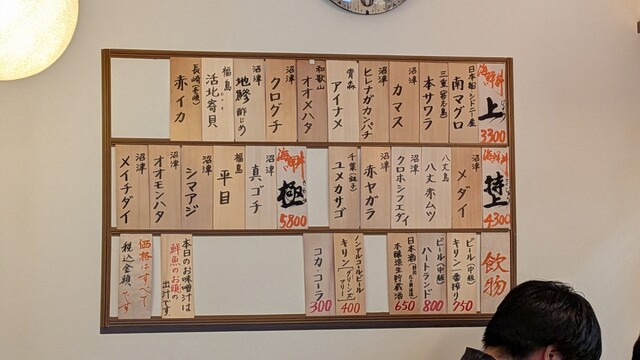 海鮮丼
上
3300
日本船シドニー産
南マグロ
三重(答志島)
本サワラ
沼津
カマス
沼津
ヒレナガカンパチ
青森
アイナメ
和歌山
オオメハタ
沼津
クログチ
沼津
地鯵
酢じめ
福島
活北寄貝
長崎
赤イカ
海鮮丼
特上
4300
沼津
メダイ
八丈島
八丈赤ムツ
沼津
クロホシフエダイ
沼津
赤ヤガラ
千葉
ユメカサゴ
海鮮丼
極
5800
沼津
真ゴチ
福島
平目
沼津
シマアジ
沼津
オオモンハタ
沼津
メイチダイ
飲物
ビール(中瓶)
キリン一番搾り
750
ビール(中瓶)
ハートランド
800
日本酒
本醸造生貯蔵酒
650
ノンアルコールビール
キリン「グリーンズフリー」
400
コカ・コーラ
300
本日のお味噌汁は
鮮魚のお頭の
出汁です
価格はすべて
税込金額です